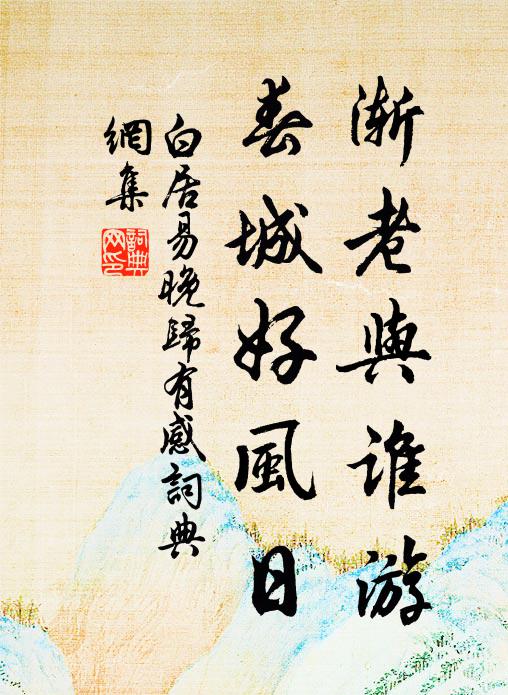 渐老與谁游
春城好風日
白居易晚歸有感詞典
網集
詞典
网印